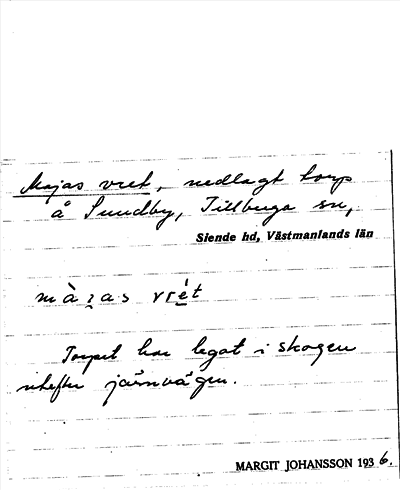 Majas vret, nedlagt torp
å Sundby, Tillberga sn,
Siende hd, Västmanlands län
màʒas vrét
Torpet har legat i skogen
utefter järnvägen.
MARGIT JOHANSSON 1936.